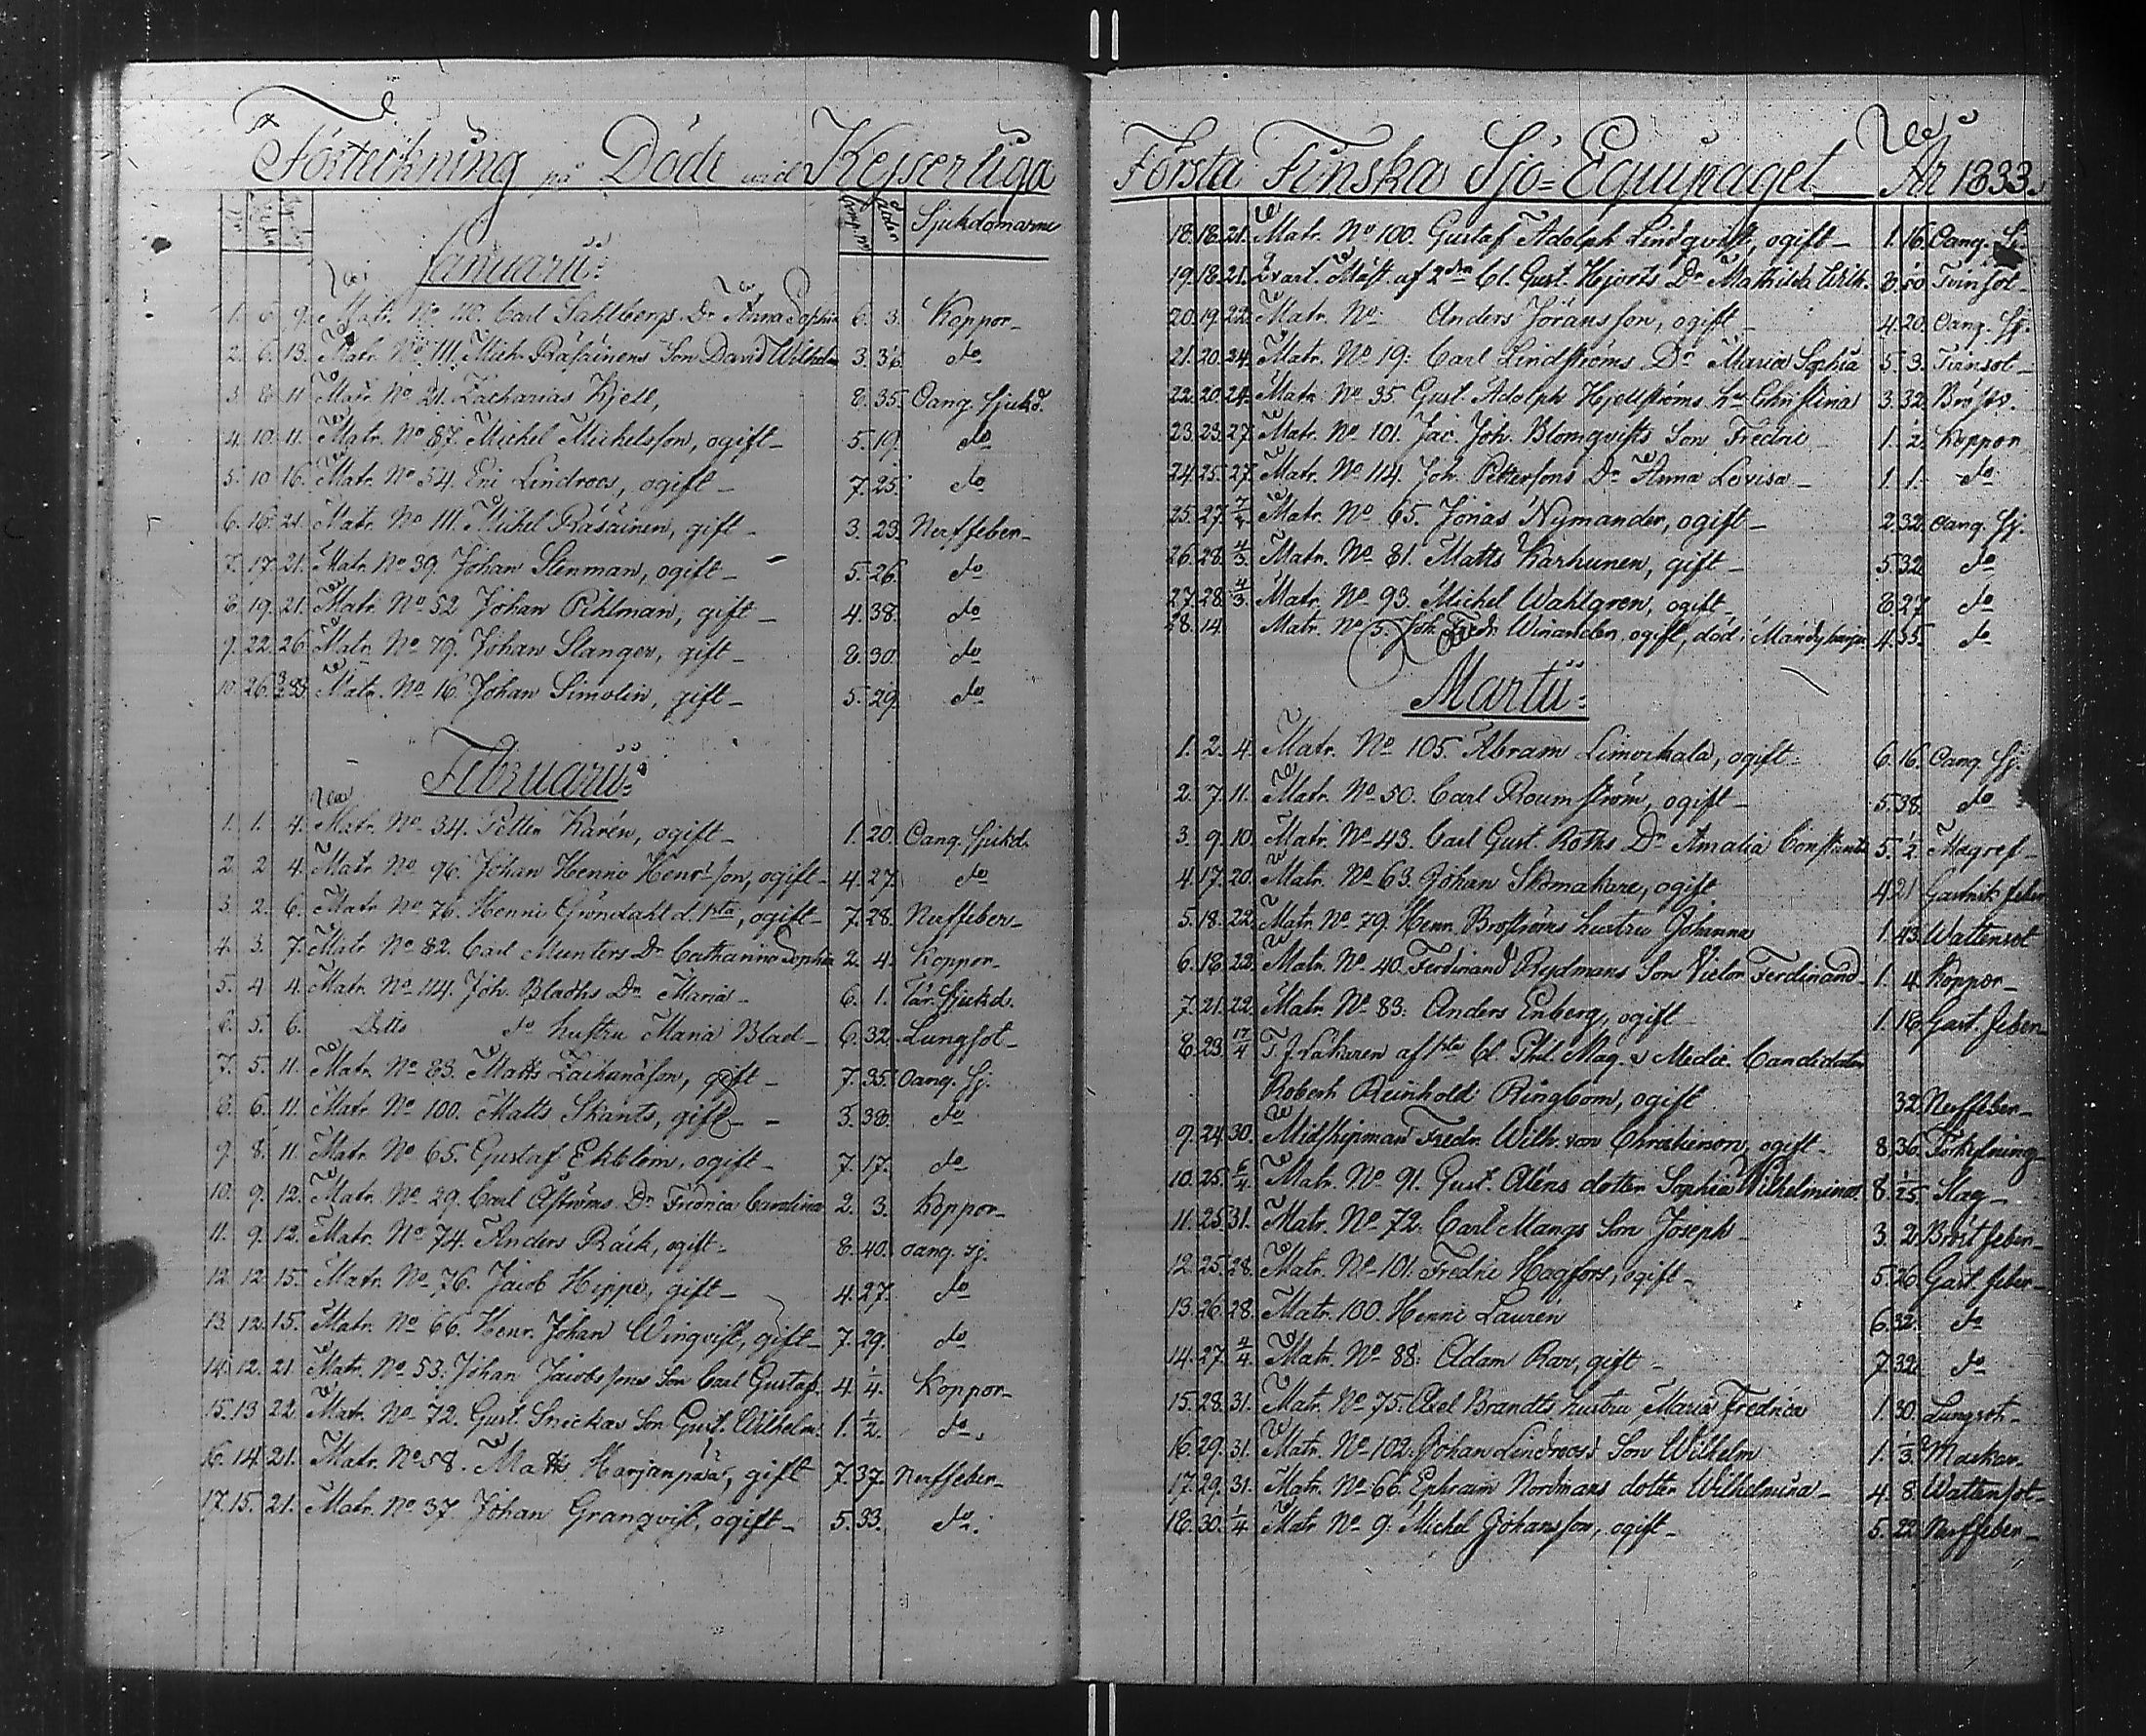 Förteckning på Döde wid Kejserliga
Sjukdomarne
Januarii:
1. 6. 9. Matr. No 110. Carl Sahlbergs Dr Anna Sophia 6. 3. Koppor_
2. 6. 13. Matr. No 111. Mich. Räsäinens Son David Wilhelm 3. 3/6. do
3. 8. 11. Matr. No 21. Zacharias Kjell, 8. 35. Oang. Sjukd.
4. 10. 11. Matr. No 87. Michel Michelsson, ogift_ 5. 19. do
5. 10. 16. Matr. No 54. Eric Lindroos, ogift_ 7. 25. do
6. 16. 21. Matr. No 111. Michel Räsäinen, gift_ 3. 23. Nerffeber_
7. 17. 21. Matr. No 39. Johan Stenman, ogift_ 5. 26. do
8. 19. 21. Matr. No 52 Johan Pihlman, gift_ 4. 38. do
9. 22. 26. Matr. No 79. Johan Slanger, gift_ 8. 30. do
10. 26. Matr. No 16. Johan Simolin, gift_ 5. 29. do
Februarii:
1. 1. 4. Matr. No 34. Petter Karén, ogift_ 1. 20. Oang. Sjukd.
2. 2 4. Matr. No 96. Johan Henric Henrsson, ogift_ 4. 27. do
3. 2. 6. Matr No 76. Henric Gröndahl d. 1sta, ogift_ 7. 28. Nerffeber_
4. 3. 7. Matr. No 82. Carl Munters Dr Catharina Sophia 2. 4. Koppor_
5. 4 4. Matr. No 114. Joh. Bladhs Dr Maria_ 6. 1. Tär. Sjukd.
6. 5. 6. Ditto do hustru Maria Blad_ 6. 32. Lungsot_
7. 5. 11. Matr. No 83. Matts Zachariasson, gift_ 7. 35. Oang. Sj.
8. 6. 11. Matr. No 100. Matts Skants, gift_ 3. 38. do
9. 8. 11. Matr. No 65. Gustaf Ekblom, ogift_ 7. 17. do
10. 9. 12. Matr. No 29. Carl Åströms Dr Fredrica Carolina 2. 3. Koppor_
11. 9. 12. Matr. No 74. Anders Räck, ogift_ 8. 40. oang. sj.
12. 12. 15. Matr. No 76. Jacob Hippe, gift_ 4. 27. do
13. 12. 15. Matr. No 66. Henr. Johan Winqvist, gift_ 7. 29. do
14. 12. 21. Matr. No 53. Johan Jacobssons Son Carl Gustaf. 4. 1/4. Koppor_
15. 13 22. Matr. No 72. Gust. Snickas Son Gust. Wilhelm. 1. 1/2. do.
16. 14. 21. Matr. No 58. Matts Harjanpää, gift 7. 37. Nerffeber_
17. 15. 21. Matr. No 37. Johan Granqvist, ogift_ 5. 33. do.
Första Finska Sjö=Equipaget_ År 1833.
18. 18. 21. Matr. No 100. Gustaf Adolph Lindqvist, ogift_ 1. 16. Oang. Sj.
19. 18. 21. Qvart. Mäst. af 2dra Cl. Gust. Hjorts Dr Mathilda Wilh. Tvinsot_
20. 19. 22. Matr. No Anders Jöransson, ogift_ 4. 20. Oang. Sj.
21. 20. 24. Matr. No 19: Carl Lindströms Dr Maria Sophia 5. 3. Tvinsot_
22. 20. 24. Matr. No 35 Gust. Adolph Hjellströms hu Christina 3. 32. Brösts.
23. 23. 27. Matr. No 101. Jac. Joh. Blomqvists Son Fredric_ 1. 1/2. Koppor
24. 25. 27. Matr. No 114. Joh. Pettersons Dr Anna Lovisa_ 1. 1. do
25. 27. Matr. No 65. Jonas Nymander, ogift_ 2. 32. oang. Sj.
26. 28. 4/3. Matr. No 81. Matts Karhunen, gift_ 5. 32 do
27. 28. 4/3. Matr. No 93. Michel Wahlgren, ogift_ 8. 27 do
28. 14. Matr. No 5. Joh. Fredr. Winander, ogift, död i 4. 35. do
Martii:
1. 2. 4. Matr. No 105. Abram Limockala, ogift_ 6. 16. Oang. Sj.
2. 7. 11. Matr. No 50. Carl Roumström, ogift_ 5. 38. do
3. 9. 10. Matr. No 43. Carl Gust. Roths Dr Amalia Constantia 5. 1/2. Magref_
4. 17. 20. Matr. No 63. Johan Skomakare, ogift 4. 21 Gastrisk feber
5. 18. 22. Matr. No 79. Henr. Broströms hustru Johanna 1. 43. Wattensot
6. 18. 22. Matr. No 40. Ferdinand Rydmans Son Victor Ferdinand 1. 4. Koppor_
7. 21. 22. Matr. No 83: Anders Enberg, ogift_ 1. 18. Gast. feber_
8. 23. 17/4 T. f. Läkaren af 1sta Cl. Phil. Mag. & Medic. Candidaten
Robert Reinhold Ringbom, ogift 32. Nerffeber_
9. 24. 30. Midshipman Fredr. Wilh. von Christierson, ogift_ 8. 36. Förkylning_
10. 25. 6/4 Matr. No 91. Gust. Aléns dotter Sophia Wilhelmina. 8. 1/25 Slag_
11. 25. 31. Matr. No 72. Carl Mangs Son Joseph_ 3. 2. Bröst feber_
12. 25. 28. Matr. No 101. Fredric Hagfors, ogift_ 5. 26. Gast. feber_
13. 26. 28. Matr. 100. Henric Laurén 6. 32. do
14. 27. 4/4. Matr. No 88: Adam Rar, gift_ 7. 32. do
15. 28. 31. Matr. No 75. Axel Brandts hustru Maria Fredrica 1. 30. Lungsot_
16. 29. 31. Matr. No 102: Johan Lindroos's Son Wilhelm 1. 1/3. Maskar_
17. 29. 31. Matr. No 66. Ephraim Nordmans dotter Wilhelmina_ 4. 8. Wattensot_
18. 30. 1/4 Matr. No 9: Michel Johansson, ogift_ 5. 22. Nerffeber_